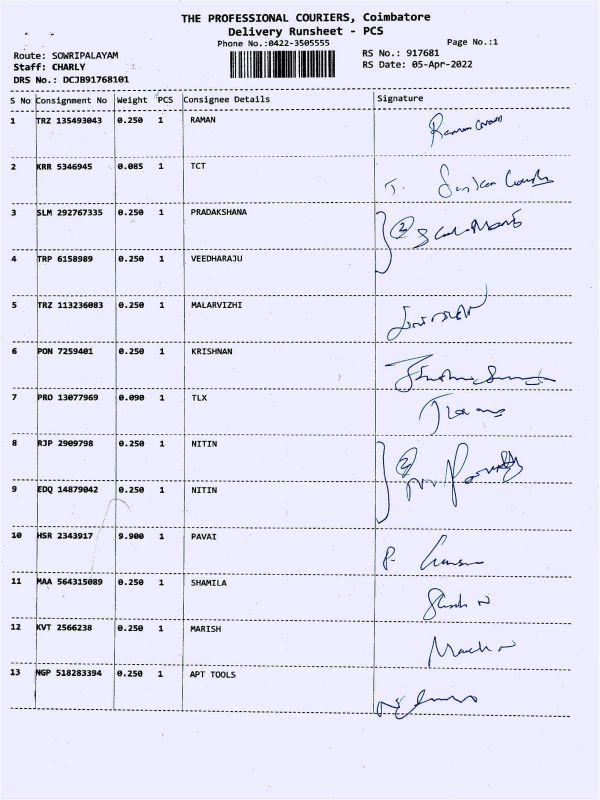 THE PROFESSIONAL COURIERS, Coimbatore
Delivery Runsheet - PCS
Phone No.:0422-3505555
Page No.:1
Route: SOWRIPALAYAM
RS No.: 917681
Staff: CHARLY
RS Date: 05-Apr-2022
DRS No.: DCJB91768101
S No Consignment No Weight PCS Consignee Details Signature
1 TRZ 135493043 0.250 1 RAMAN
2 KRR 5346945 0.085 1 TCT
3 SLM 292767335 0.250 1 PRADAKSHANA
4 TRP 6158989 0.250 1 VEEDHARAJU
5 TRZ 113236083 0.250 1 MALARVIZHI
6 PON 7259401 0.250 1 KRISHNAN
7 PRO 13077969 0.090 1 TLX
8 RJP 2909798 0.250 1 NITIN
9 EDQ 14879042 0.250 1 NITIN
10 HSR 2343917 9.900 1 PAVAI
11 MAA 564315089 0.250 1 SHAMILA
12 KVT 2566238 0.250 1 MARISH
13 NGP 518283394 0.250 1 APT TOOLS